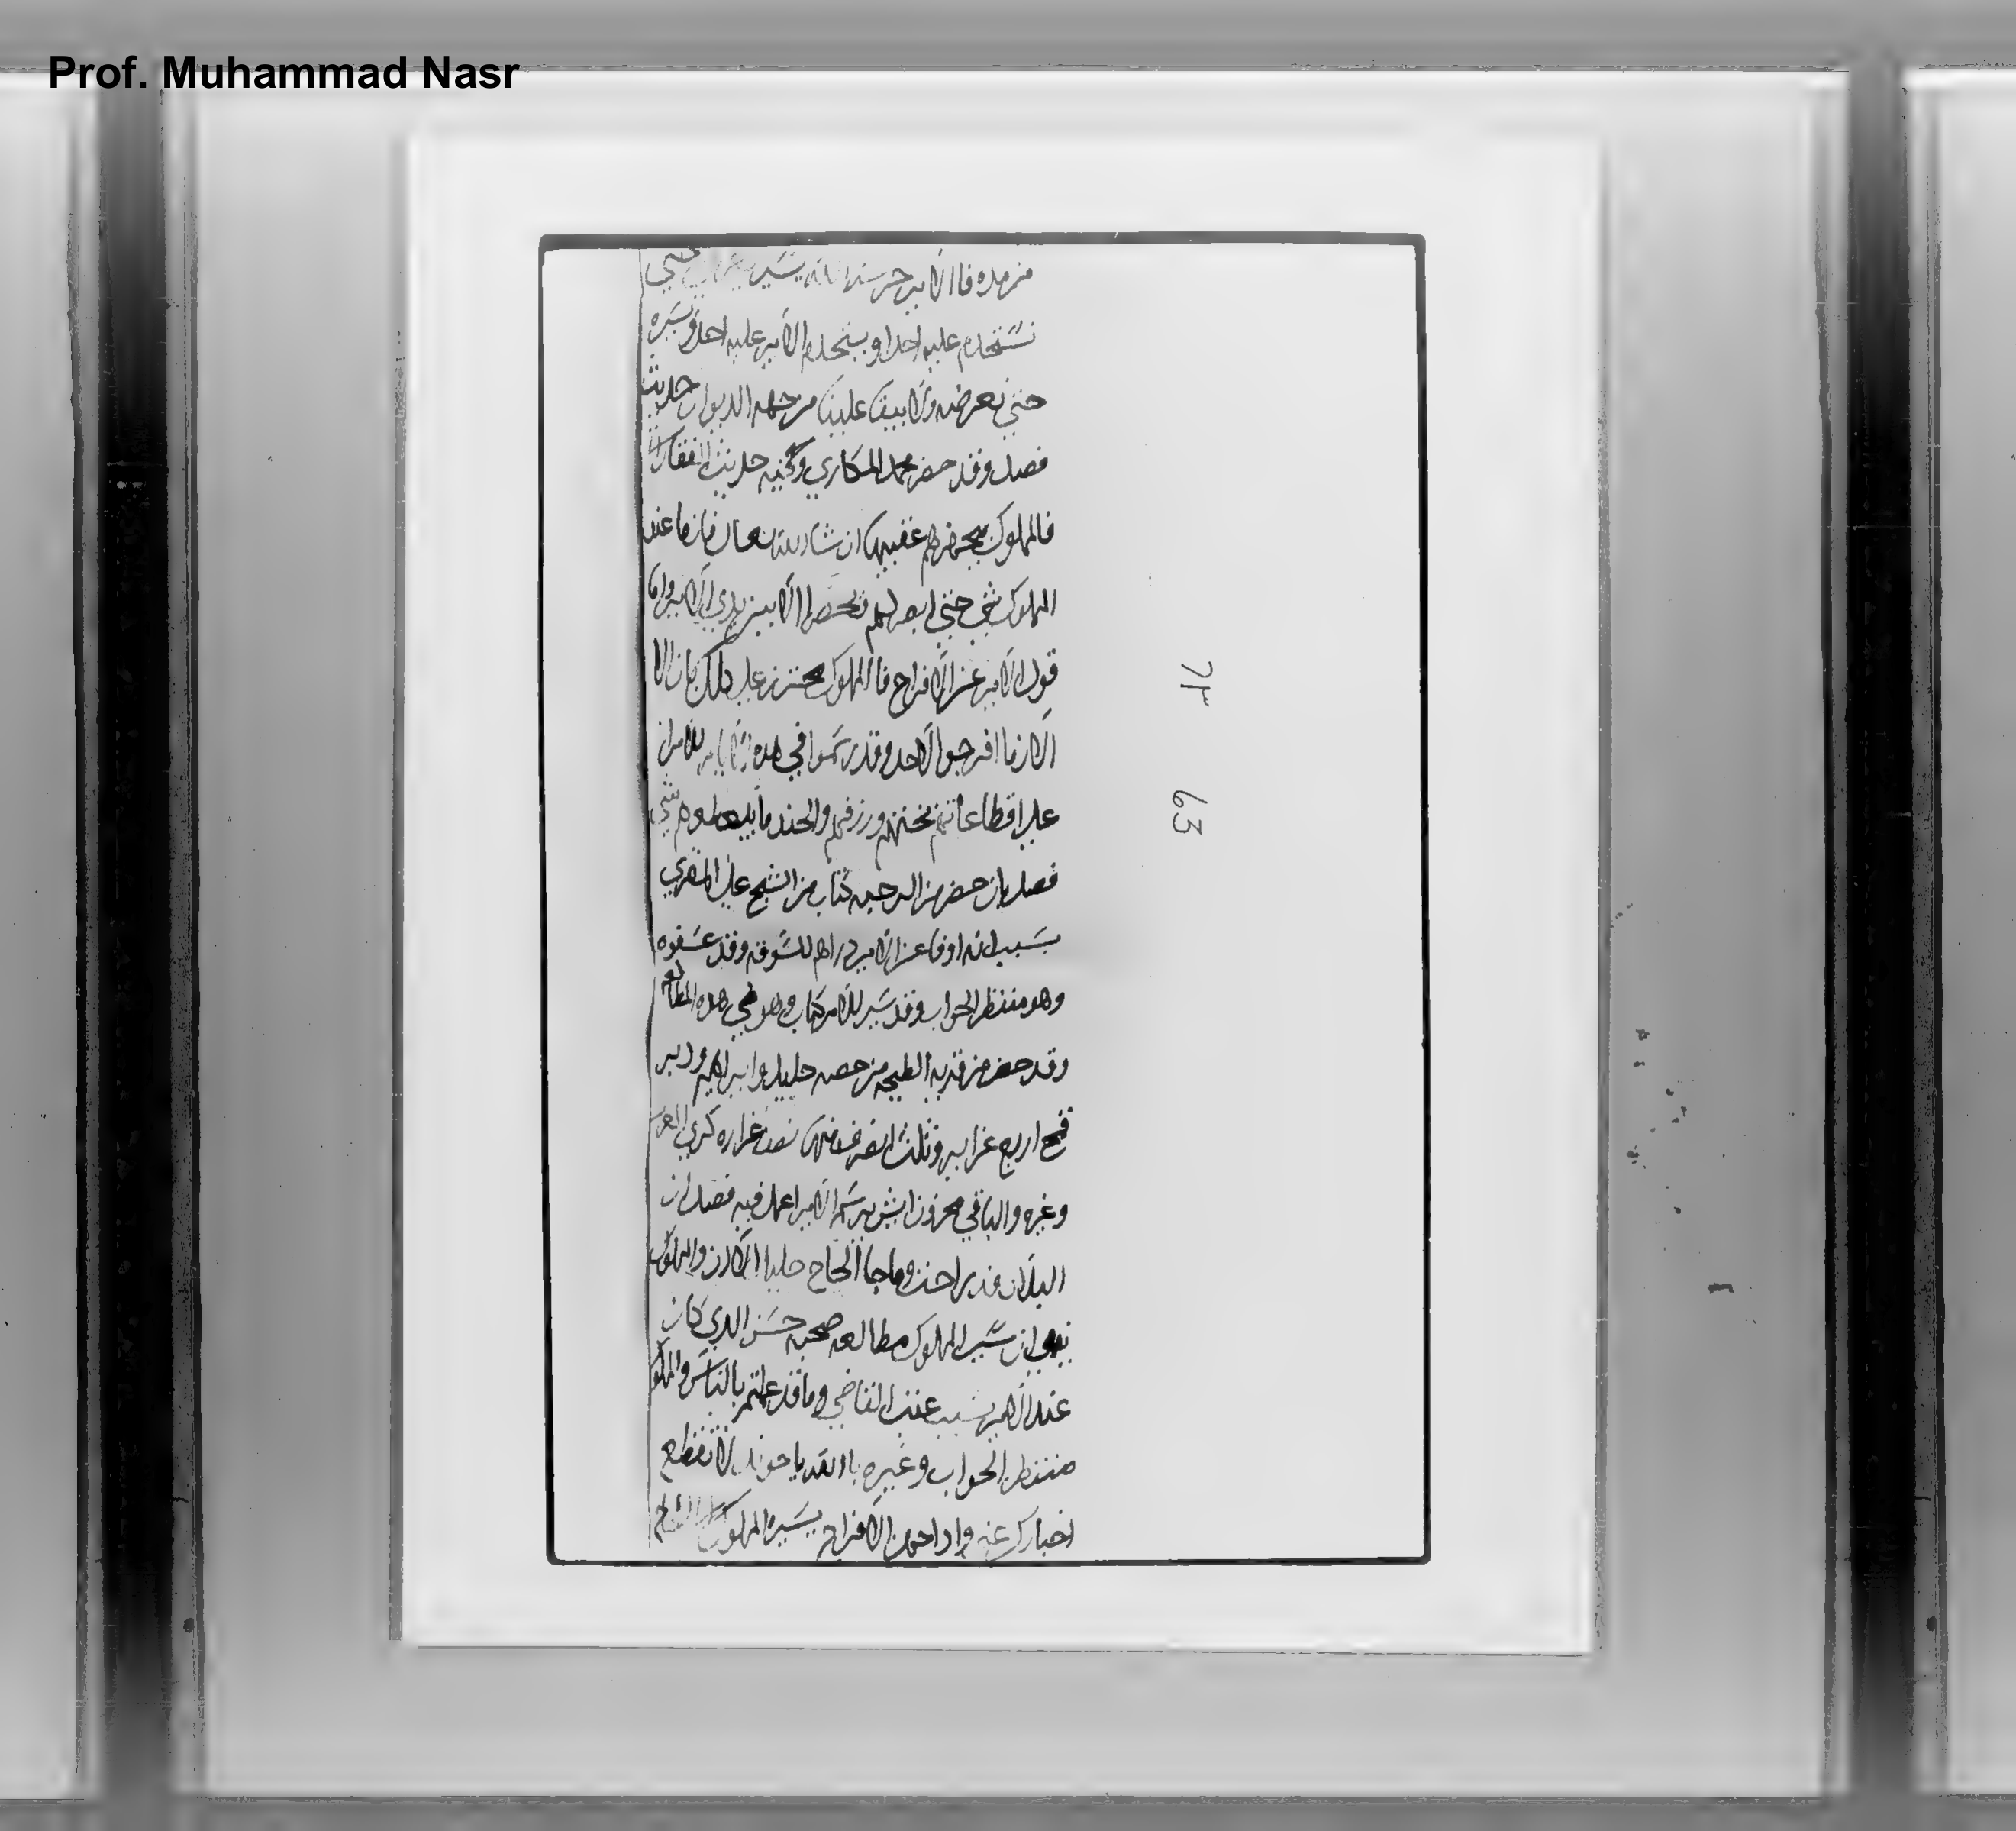 Prof. Muhammad Nasr
من هده فاالامير حرسه الله يسير حتي
نستخدم عليه احدا ويستخدم الامير عليه احد ويسيره
حتي نعرضه ولا يبقا علينا من جهه الديوان حديث
فصل وقد حضر محمد المكاري وكخيه حديث
فالمملوك يحضرهم عقيبها ان شا الله تعالى فانما عند
المملوك شي حتي لهم االا بين يدي الامير واما
قول الامير عن الافراج فا المملوك محترز على دلك فان الا
الان ما افرجوا لاحد وقد رسموا في هده الايام للامرا
على اقطاعاتهم ورزقهم والجند ما بيعطوهم شي
فصل بان حضر من الرحبه كتاب من الشيخ علي المقري
بسبب انه اوفا عن الامير دراهم للسوقه وقد عسفوه
وهو منتظر الجواب وقد سير للامير كتاب وهو طي هده المطالعه
وقد حضر من قريه من حصه خليل وابراهيم ودبر
قمح اربع غراير وثلث انصرف منها نصف غراره كري
وغيره والباقي مخزون ايش يرسم الامير اعمل فيه فصل ان
البلاد قد راحت وما جا الحاج الان والمملوك
ينهي ان سير المملوك مطالعه صحبه حسن الدي كان
عند الامير بسبب عتب القاضي وما قد عملتم بالناس والمملوك
منتظر الجواب وغيره با الله يا خوند لا تقطع
اخبارك عنه وادا الافراج يسيره المملوك
٦٣
63